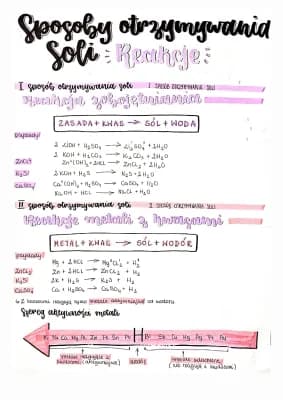 Sposoby otrzymywania
Soli: Reakcje
I sposób otrzymywania soli I SPOSÓB OTRZYMYWANIA SOLI
Reakcja zobojętniania
ZASADA + KWAS → SÓL + WODA
Przykłady:
2 LiOH + H₂SO₄ → Li₂SO₄ + 2H₂O
2 KOH + H₂CO₃ → K₂CO₃ + 2H₂O
ZnCl₂ Zn(OH)₂ + 2HCl → ZnCl₂ + 2H₂O
K₂S 2KOH + H₂S → K₂S + 2H₂O
CaSO₄ Ca(OH)₂ + H₂SO₄ → CaSO₄ + H₂O
NaOH + HCl → NaCl + H₂O
II sposób otrzymywania soli
Reakcje metali z kwasami
METAL + KWAS → SÓL + WODÓR
przykłady:
Mg + 2HCl → MgCl₂ + H₂
ZnCl₂ Zn + 2HCl → ZnCl₂ + H₂
K₂S 2K + H₂S → K₂S + H₂
CaSO₄ Ca + H₂SO₄ → CaSO₄ + H₂
Z kwasami reagują tylko metale aktywniejsze od wodoru
Szereg aktywności metali
K Na Ca Mg Al Zn Fe Sn Pb H Bi Cu Hg Ag Pt Au
metale reagujące z wodór metale szlachetne
kwasami (aktywniejsze) (nie reagują z kwasami)